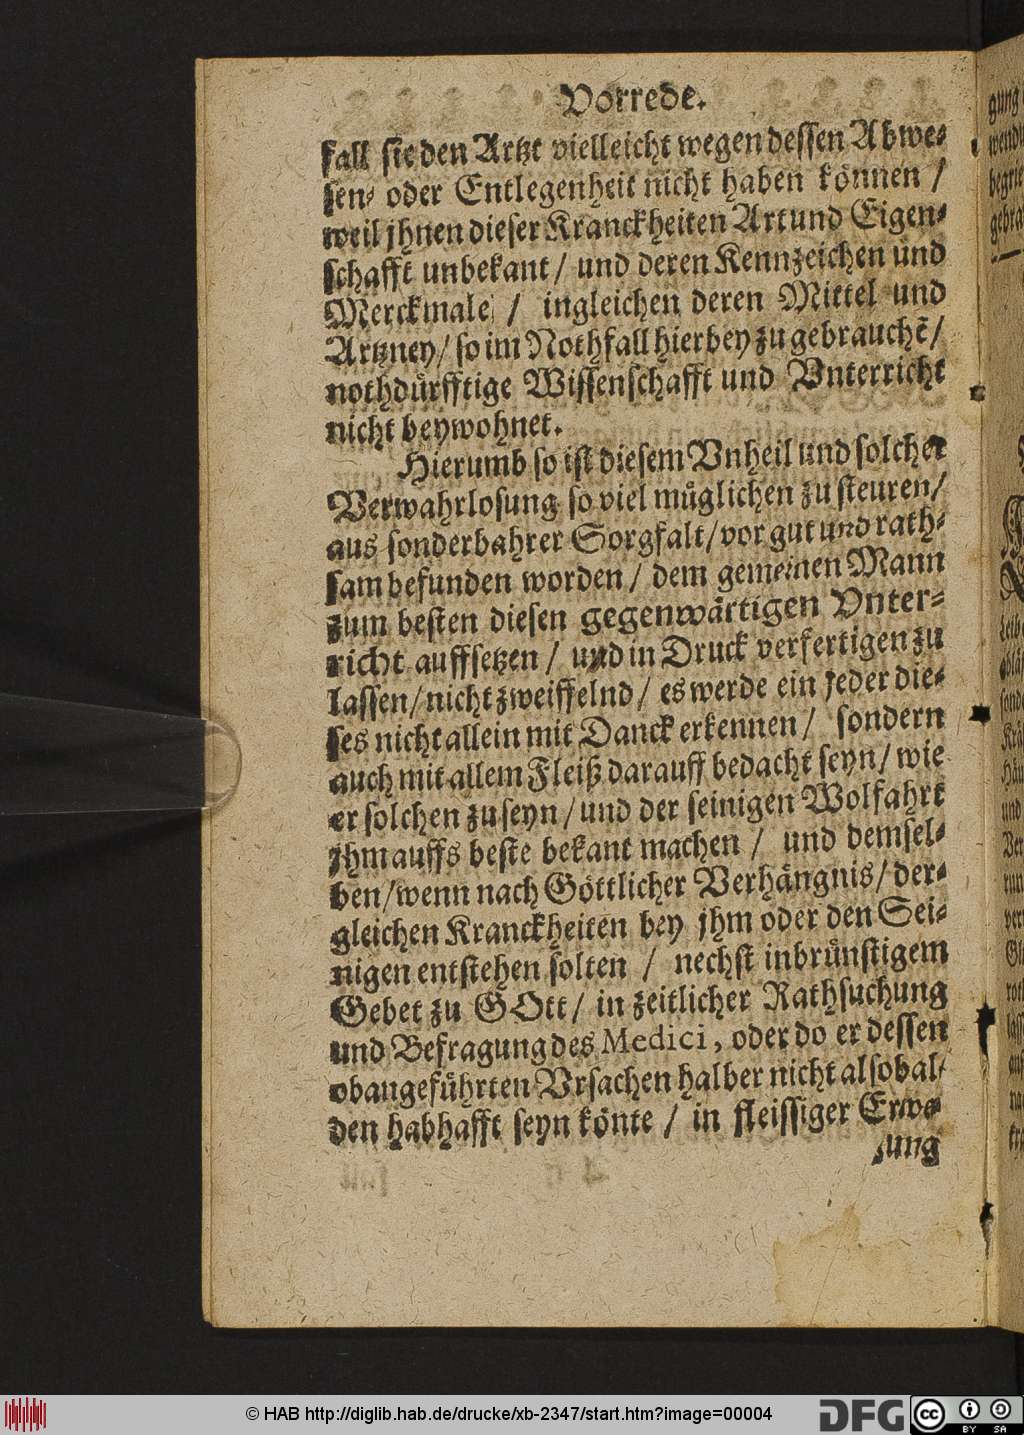 Vorrede.
fall sie den Artzt vielleicht wegen dessen Abwe-
sen- oder Entlegenheit nicht haben können /
weil jhnen dieser Kranckheiten Art und Eigen-
schafft unbekant / und deren Kennzeichen und
Merckmale / ingleichen deren Mittel und
Artzney / so im Nothfall hierbey zu gebrauchẽ /
nothdürfftige Wissenschafft und Vnterricht
nicht beywohnet.
Hierumb so ist diesem Vnheil und solcher
Verwahrlosung so viel müglichen zu steuren /
aus sonderbahrer Sorgfalt / vor gut und rath-
sam befunden worden / dem gemeinen Mann
zum besten diesen gegenwärtigen Vnter-
richt auffsetzen / und in Druck verfertigen zu
lassen / nicht zweiffelnd / es werde ein jeder die-
ses nicht allein mit Danck erkennen / sondern
auch mit allem Fleiß darauff bedacht seyn / wie
er solchen zu seyn / und der seinigen Wolfahrt
jhm auffs beste bekant machen / und demsel-
ben / wenn nach Göttlicher Verhängnis / der-
gleichen Kranckheiten bey jhm oder den Sei-
nigen entstehen solten / nechst inbrünstigem
Gebet zu GOtt / in zeitlicher Rathsuchung
und Befragung des Medici, oder do er dessen
obangeführten Vrsachen halber nicht alsobal-
den habhafft seyn könte / in fleissiger Erwe-
gung
© HAB http://diglib.hab.de/drucke/xb-2347/start.htm?image=00004
DFG
cc
BY SA